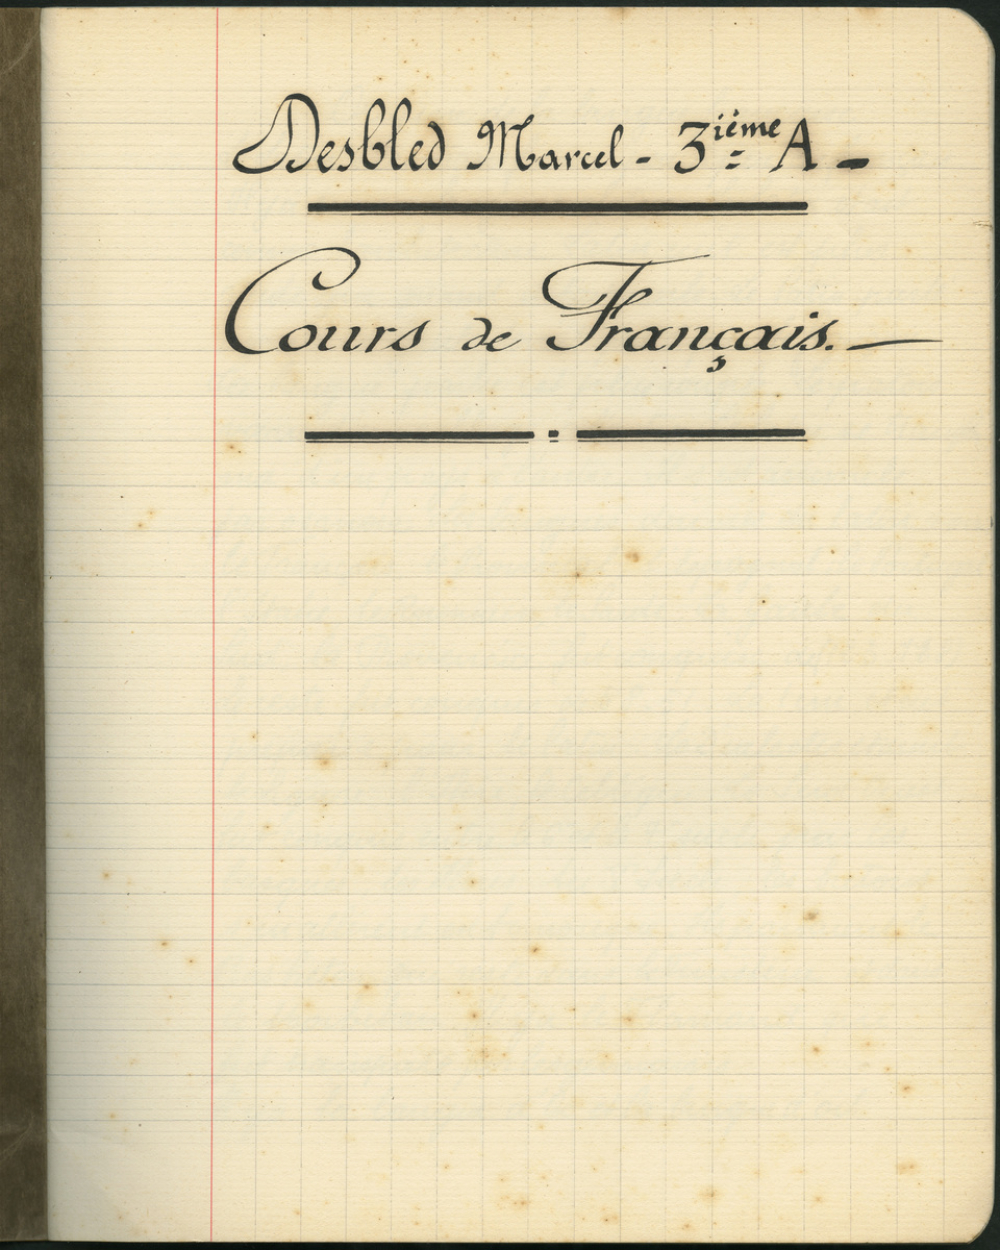 Desbled Marcel - 3ième A -
Cours de Français. —